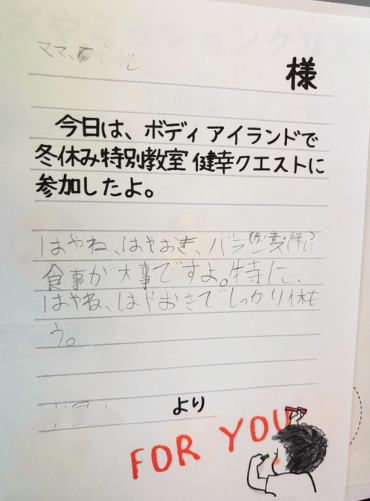 ママ、
様
今日は、ボディアイランドで
冬休み特別教室 健幸クエストに
参加したよ。
はやね、はやおき、バランスのいい
食事が大事ですよ。特に、
はやね、はやおきでしっかり休も
う。
より
FOR YOU